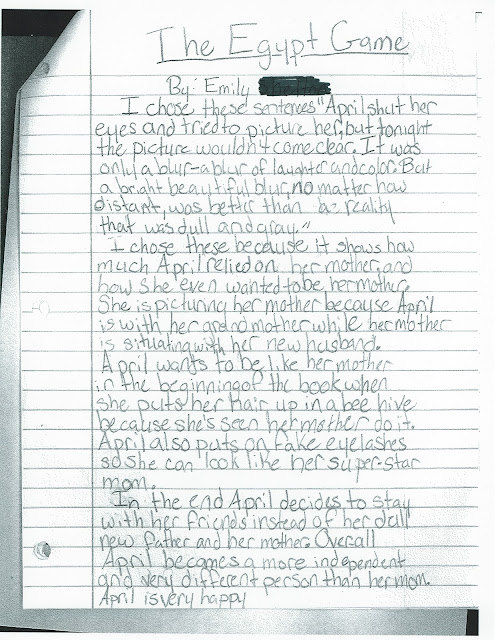 The Egypt Game
By: Emily
I chose these sentences "April shut her
eyes and tried to picture her, but tonight
the picture wouldn't come clear. It was
only a blur-a blur of laughter and color. But
a bright beautiful blur, no matter how
distant, was better than a reality
that was dull and gray."
I chose these because it shows how
much April relied on her mother, and
how she even wanted to be her mother.
She is picturing her mother because April
is with her grandmother while her mother
is situating with her new husband.
April wants to be like her mother
in the beginning of the book when
she puts her hair up in a bee hive
because she's seen her mother do it.
April also puts on fake eyelashes
so she can look like her super-star
mom.
In the end April decides to stay
with her friends instead of her dull
new father and her mother. Overall
April becomes a more independent
and very different person than her mom.
April is very happy